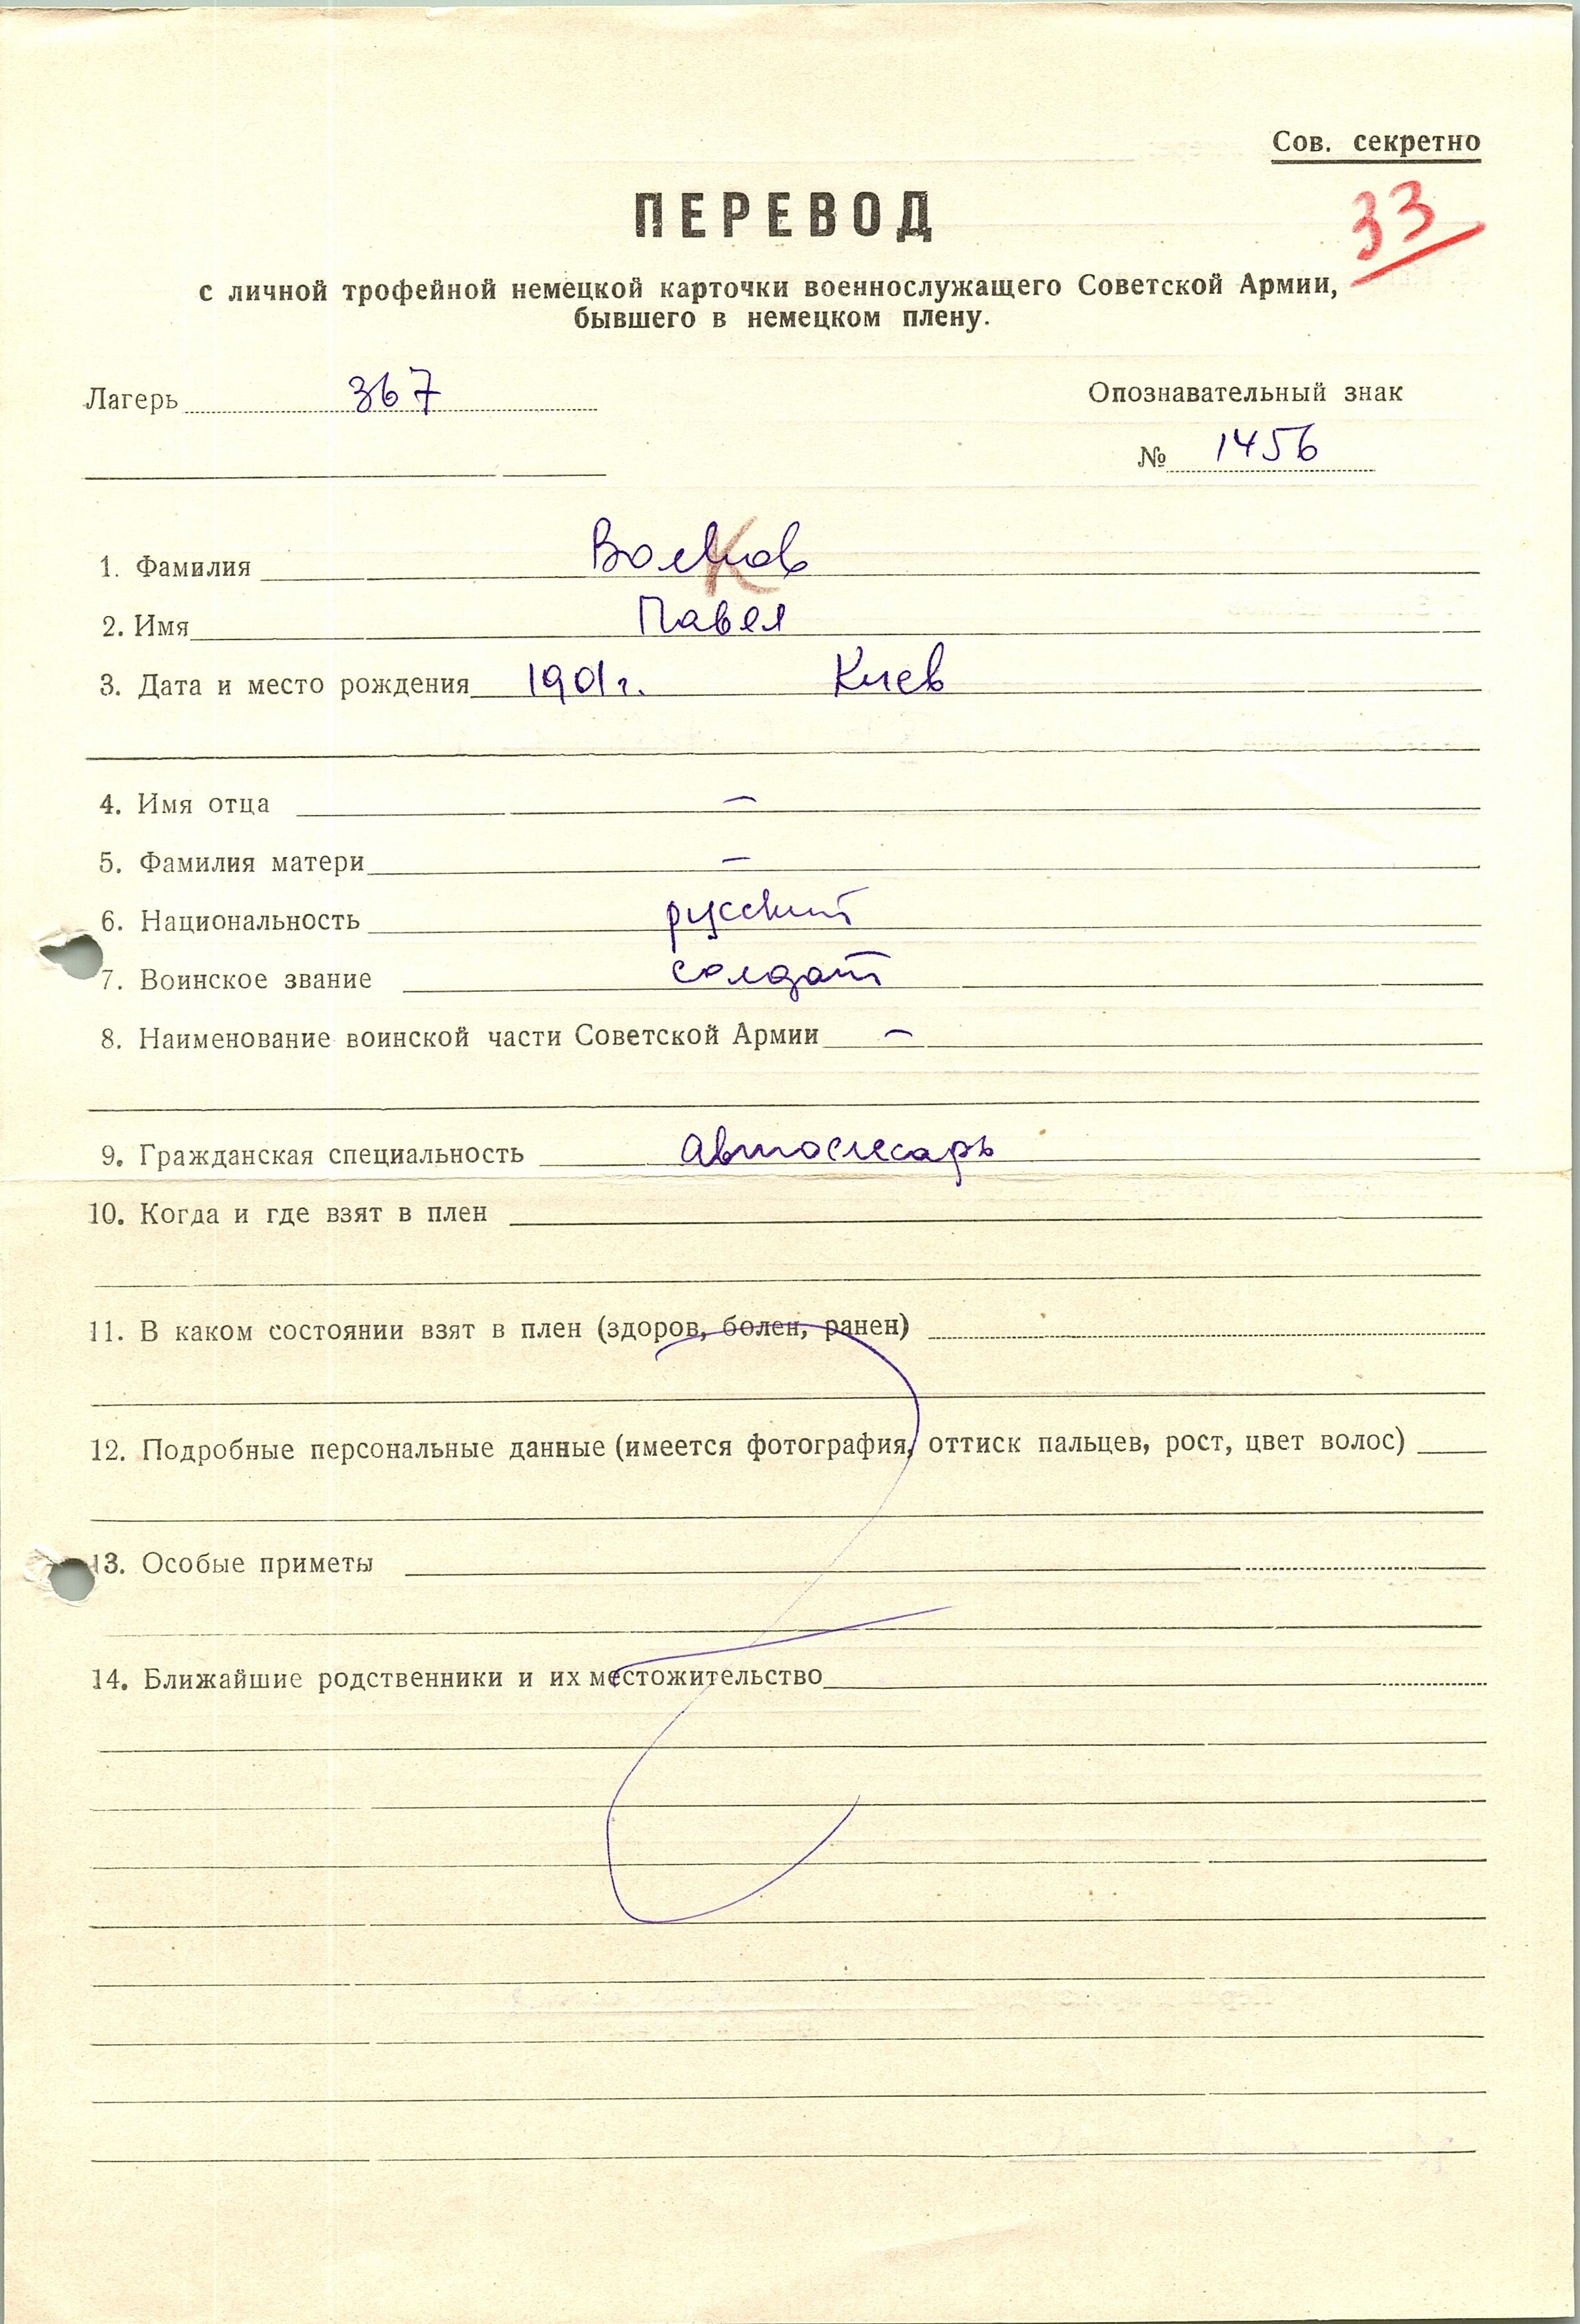 Сов. секретно
ПЕРЕВОД
33
с личной трофейной немецкой карточки военнослужащего Советской Армии,
бывшего в немецком плену.
Лагерь 367
Опознавательный знак
№ 1456
1. Фамилия Волков
2. Имя Павел
3. Дата и место рождения 1901г. Киев
4. Имя отца –
5. Фамилия матери –
6. Национальность русский
7. Воинское звание солдат
8. Наименование воинской части Советской Армии –
9. Гражданская специальность автослесарь
10. Когда и где взят в плен
11. В каком состоянии взят в плен (здоров, болен, ранен)
12. Подробные персональные данные (имеется фотография, оттиск пальцев, рост, цвет волос)
13. Особые приметы
14. Ближайшие родственники и их местожительство